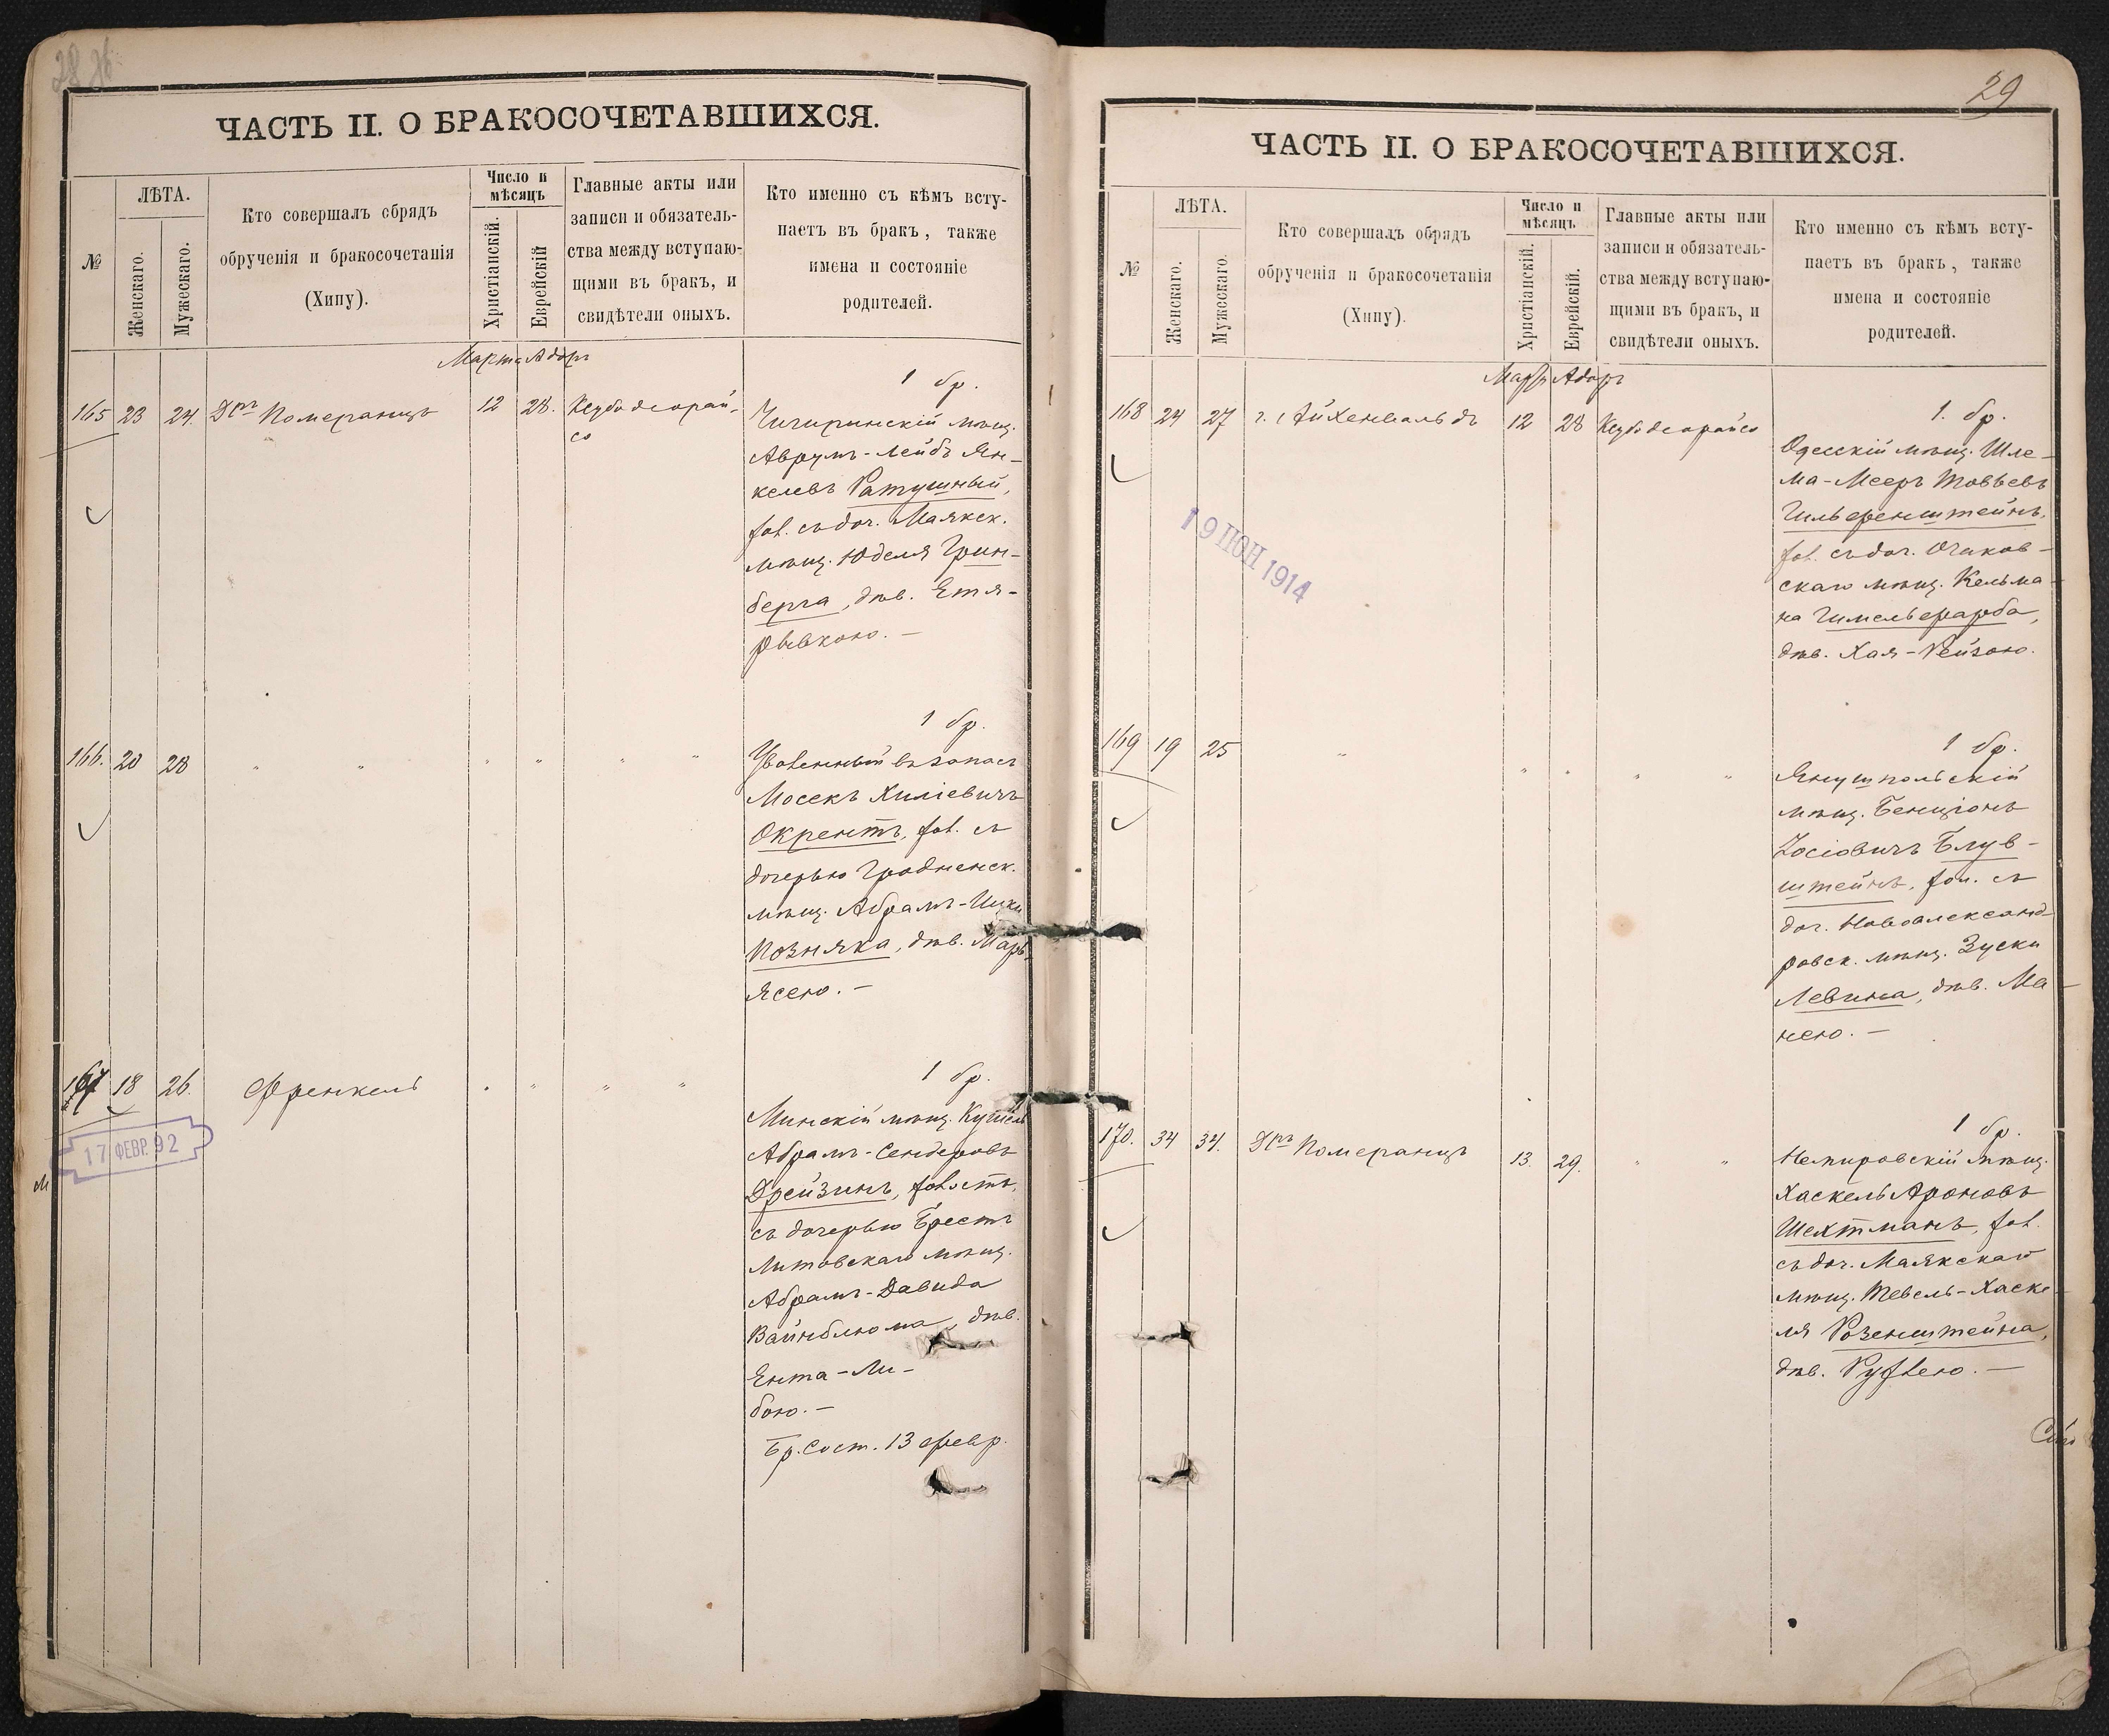 ЧАСТЬ II. О БРАКОСОЧЕТАВШИХСЯ.
№
ЛѢТА.
Женскаго.
Мужескаго.
Кто совершалъ обрядъ
обрученія и бракосочетанія
(Хипу).
Число и
мѣсяцъ
Христіанскій.
Еврейскій
Главные акты или
записи и обязатель-
ства между вступаю-
щими въ бракъ, и
свидѣтели оныхъ.
Кто именно съ кѣмъ всту-
паетъ въ бракъ, также
имена и состояніе
родителей.
Марта Адаръ
165 23 24. Дръ Померанцъ 12 28. Кеубо деорай-
со
1 бр.
Чигиринскій мѣщ.
Аврумъ-Лейбъ Ян-
келевъ Ратушный,
съ доч. Маякск.
мѣщ. Юделя Грин-
берга, дѣв. Етя-
Рывкою. —
166. 20 28 " " " " " "
1 бр.
Уволенный въ запасъ
Мосекъ Хиліевичъ
Окрентъ, съ
дочерью Гродненск.
мѣщ. Абрамъ-Ицки
Позняка, дѣв. Марь-
Ясею. —
167 18 26. Френкель " " " "
17 ФЕВР. 92
1 бр.
Минскій мѣщ. Кушель
Абрамъ-Сендеровъ
Дрейзинъ,
съ дочерью Брестъ
Литовскаго мѣщ.
Абрамъ-Давида
Вайнблюма, дѣв.
Ента-Ли-
бою. —
Бр. сост. 13 февр.
29
ЧАСТЬ II. О БРАКОСОЧЕТАВШИХСЯ.
№
ЛѢТА.
Женскаго.
Мужескаго.
Кто совершалъ обрядъ
обрученія и бракосочетанія
(Хипу).
Число и
мѣсяцъ
Христіанскій.
Еврейскій.
Главные акты или
записи и обязатель-
ства между вступаю-
щими въ бракъ, и
свидѣтели оныхъ.
Кто именно съ кѣмъ всту-
паетъ въ бракъ, также
имена и состояніе
родителей.
Март Адаръ
168 24 27 г. Айхенвальдъ 12 28 Кеубо деорайсо
19 ІЮН 1914
1. бр.
Одесскій мѣщ. Шле-
ма-Мееръ Товьевъ
Гильференштейнъ,
съ доч. Очаков-
скаго мѣщ. Кельма-
на Гимельфарба,
дѣв. Хая-Рейзою.
169 19 25 " " " " "
1 бр.
Янушпольскій
мѣщ. Бенціонъ
Іосіовичъ Блув-
штейнъ, съ
доч. Новоалександ-
ровск. мѣщ. Зуски
Левина, дѣв. Ма-
нею. —
170. 34 34. Дръ Померанцъ 13. 29. " "
1 бр.
Немировскій мѣщ.
Хаскель Ароновъ
Шехтманъ,
съ доч. Маякскаго
мѣщ. Тевель-Хаске-
ля Розенштейна,
дѣв. Рухлею. —